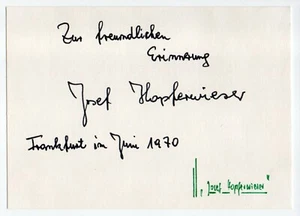 Zur freundlichen
Erinnerung
Josef Hopferwieser
Frankfurt im Juni 1970
"Josef Hopferwieser"